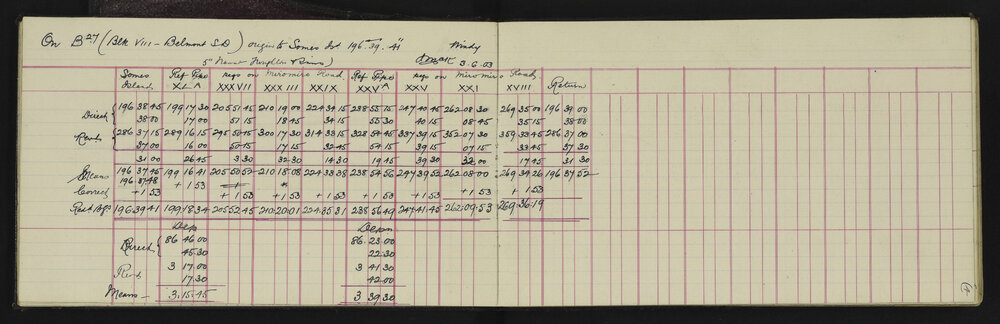 On B27 (Blk VIII - Belmont S.D) origin to Somes Isd 196° 39' 41" Windy
5" 3.6.03
Somes Ref Pegs regs on Miromiro Road Ref Pegs regs on Miromiro Road Return
Island XL A XXXVII XXXIII XXIX XXV A XXV XXI XVIII
Direct { 196 38 45 199 17 30 205 51 45 210 19 00 224 34 15 238 55 15 247 40 45 262 08 30 269 35 00 196 39 00
38 00 17 00 51 15 18 45 34 15 55 30 40 15 08 45 35 15 38 00
Revd { 286 37 15 289 16 15 295 50 15 300 17 30 314 33 15 328 54 45 337 39 15 352 07 30 359 33 45 286 37 00
37 00 16 00 50 15 17 15 32 45 54 15 39 15 07 15 33 45 37 30
31 00 26 45 3 30 32 30 14 30 19 45 39 30 32 00 17 45 31 30
Means 196 37 45 199 16 41 205 50 52 210 18 08 224 33 38 238 54 56 247 39 52 262 08 00 269 34 26 196 37 52
196 37 48 + 1 53
Correct + 1 53 + 1 53 + 1 53 + 1 53 + 1 53 + 1 53 + 1 53 + 1 53
Red Bgs 196 39 41 199 18 34 205 52 45 210 20 01 224 35 31 238 56 49 247 41 45 262 09 53 269 36 19
Depn Depn
Direct { 86 46 00 86 23 00
45 30 22 30
Revd 3 17 00 3 41 30
17 30 42 00
Means - 3 15 45 3 39 30